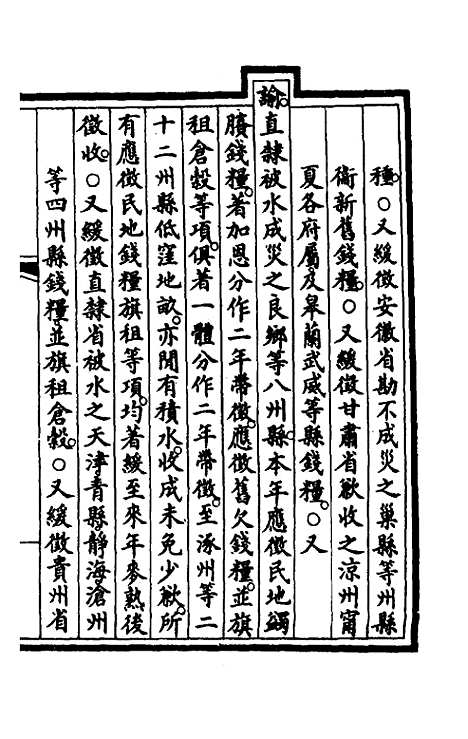 種。○又緩徵安徽省勘不成災之巢縣等州縣
衞新舊錢糧。○又緩徵甘肅省歉收之涼州甯
夏各府屬。及皋蘭武威等縣錢糧。○又
諭。直隸被水成災之良鄉等八州縣。本年應徵民地蠲
賸錢糧。著加恩分作二年帶徵。應徵舊欠錢糧。並旗
租倉穀等項。俱著一體分作二年帶徵。至涿州等二
十二州縣低窪地畝。亦閒有積水。收成未免少歉。所
有應徵民地錢糧旗租等項。均著緩至來年麥熟後
徵收。○又緩徵直隸省被水之天津。青縣。靜海。滄州
等四州縣錢糧。並旗租倉穀。○又緩徵貴州省